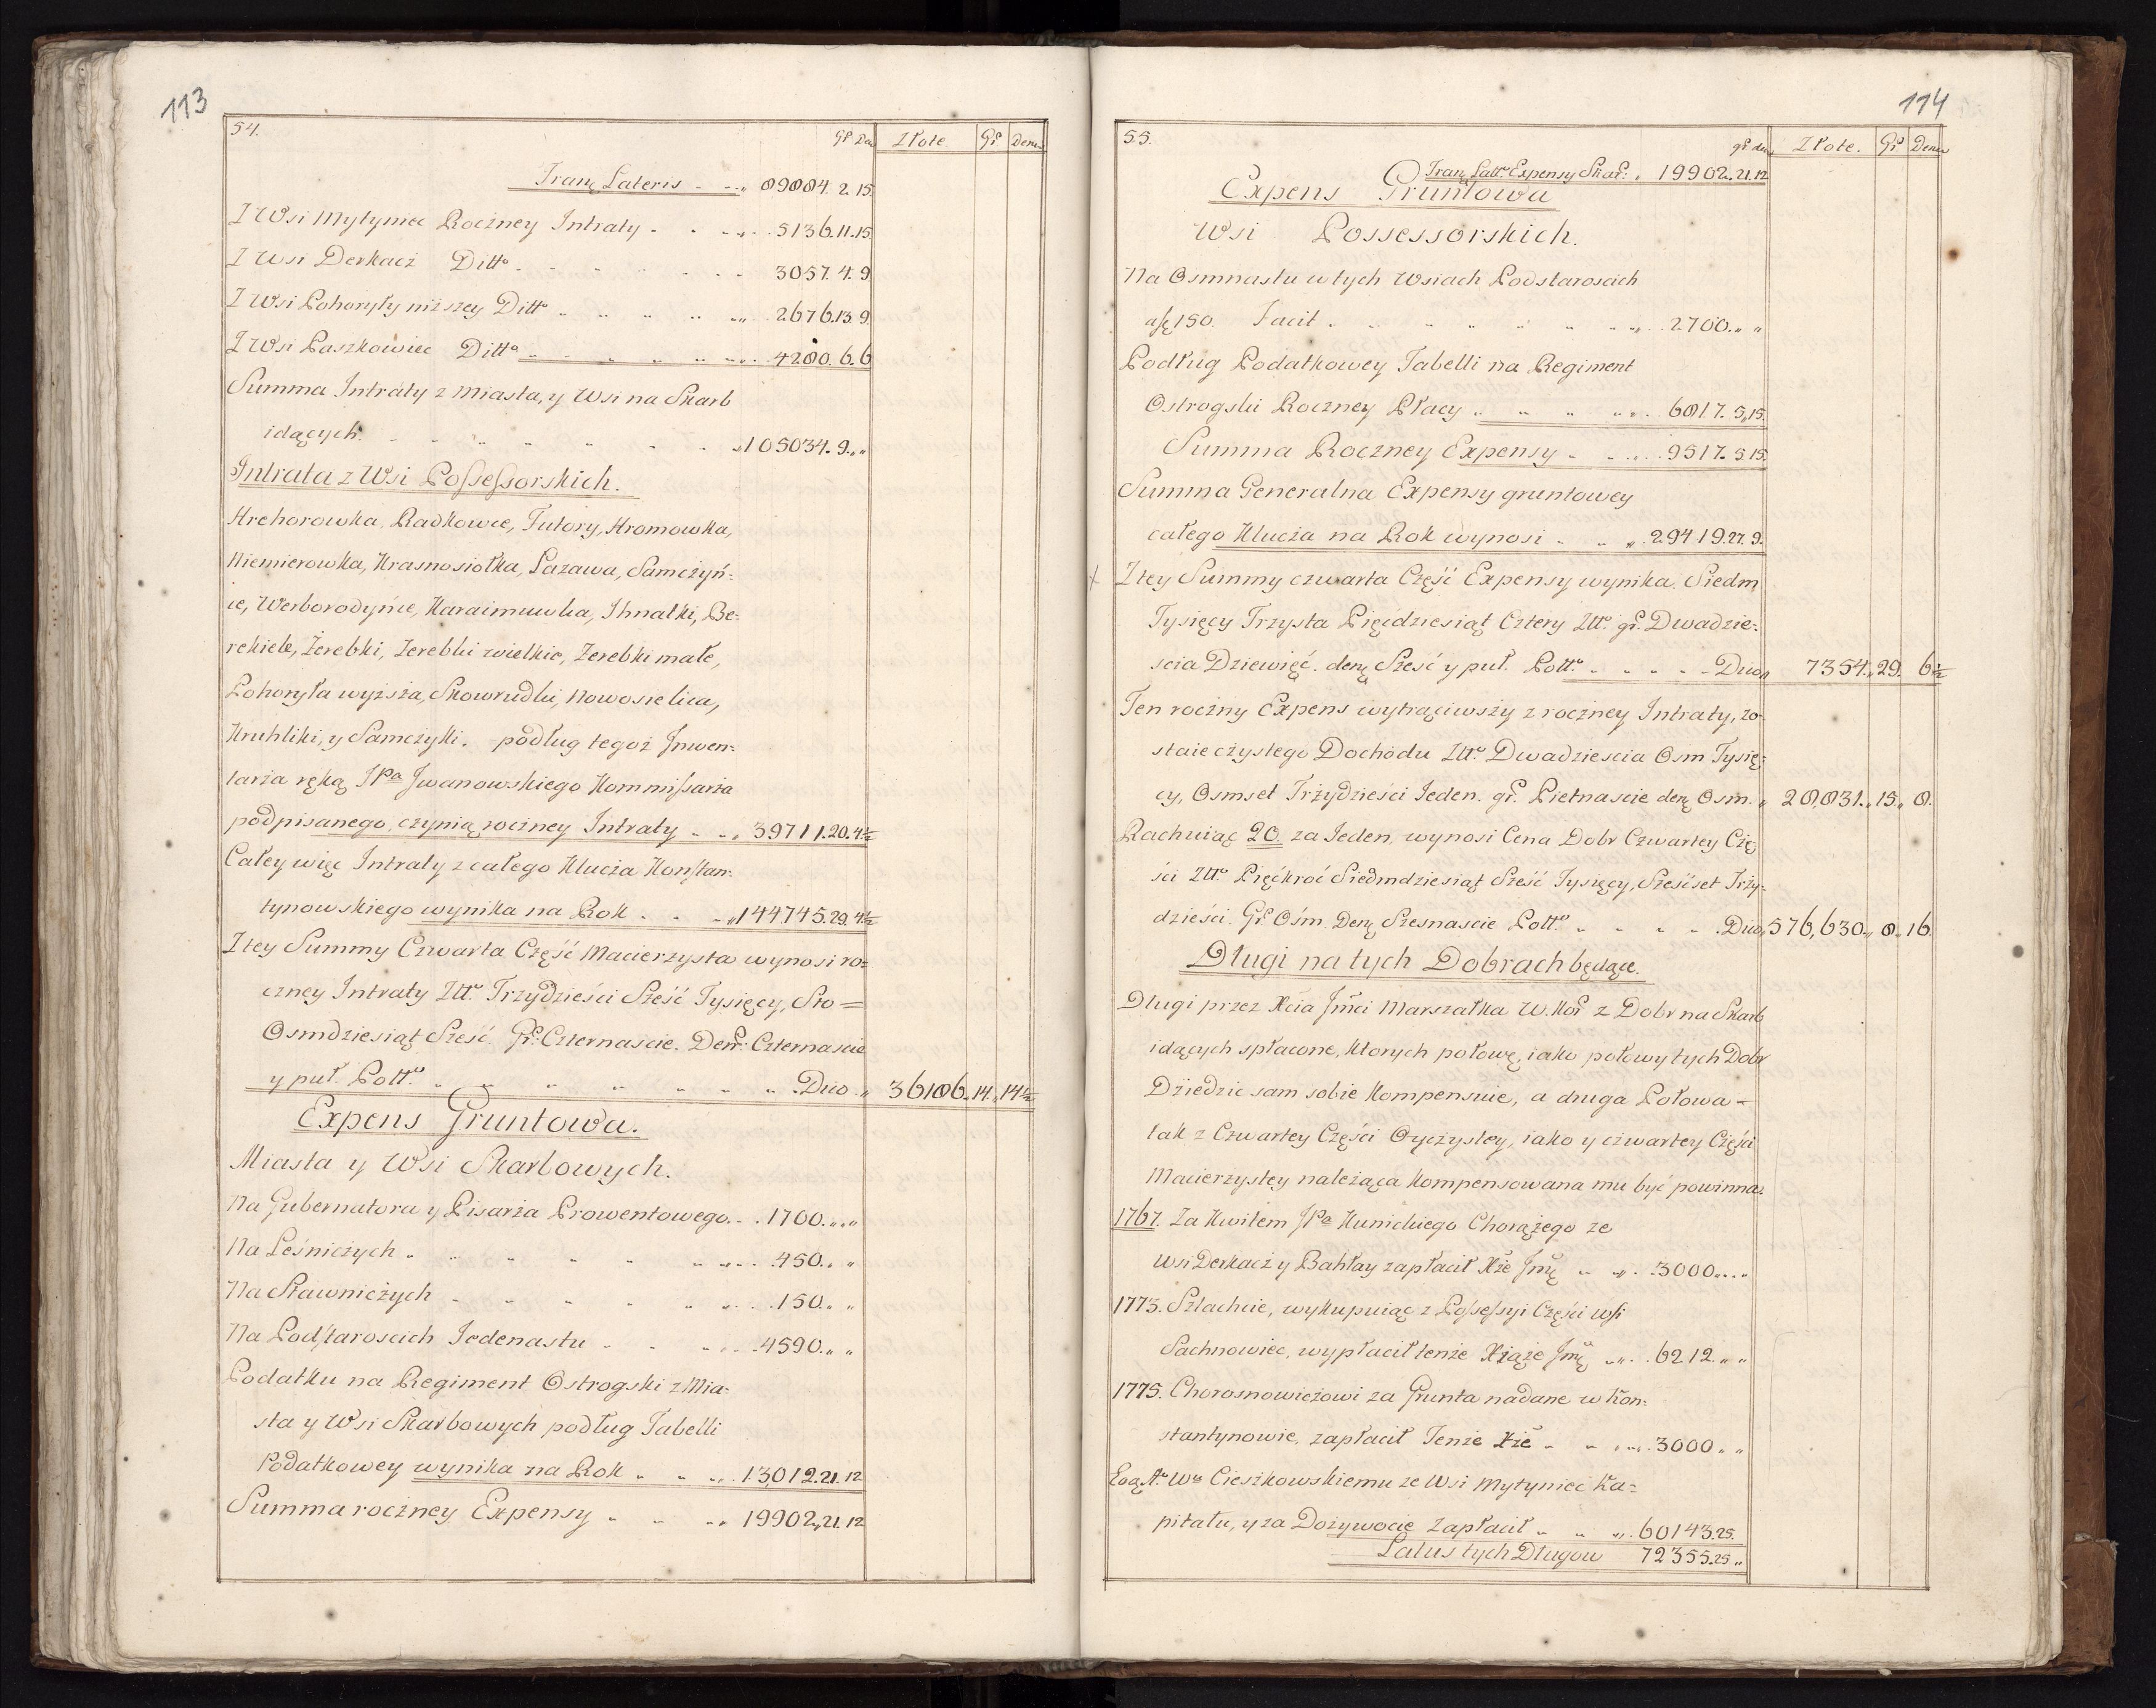 113
54.
Gr̃ Den
Złote
Gr̃
Denar
Tranę Lateris 89884. 2. 15.
Z Wsi Mytyniec Roczney Intraty 5136. 11. 15.
Z Wsi Derkacz Ditto 3057. 4. 9.
Z Wsi Pohoryły niższey Ditto 2676. 13. 9.
Z Wsi Paszkowiec Ditto 4280. 6. 6.
Summa Intraty z Miasta, y Wsi na Skarb
idących 105034. 9. „
Intrata z Wsi Possessorskich.
Hrehorowka, Radkowce, Futory, Hromowka,
Niemierowka, Krasnosiołka, Łazawa, Samczyń=
ce, Werborodyńce, Karaimuwka, Ihnatki, Be=
rekiele, Żerebki, Żerebki wielkie, Żerebki małe,
Pohoryła wyższa, Skowrudki, Nowosielica,
Kruhliki, y Samczyki. podług tegoż Inwen=
tarza ręką JPa Jwanowskiego Kommissarza
podpisanego, czynią roczney Intraty 39711. 20. 4½
Całey więc Intraty z całego Klucza Konstan=
tynowskiego wynika na Rok 144745. 29. 4½
Z tey Summy Czwarta Część Macierzysta wynosi ro=
czney Intraty Złł. Trzydzieści Sześć Tysięcy, Sto=
Osmdziesiąt Sześć. Gr̃: Czternascie. Denr̃: Czternascie
y puł. Poll. Dico „ 36186. 14. 14½
Expens Gruntowa.
Miasta y Wsi Skarbowych.
Na Gubernatora y Pisarza Prowentowego 1700. „ „
Na Leśniczych 450. „ „
Na Stawniczych 150. „ „
Na Podstaroscich Jedenastu 4590. „ „
Podatku na Regiment Ostrogski z Mia=
sta y Wsi Skarbowych podług Tabelli
Podatkowey wynika na Rok 13,012. 21. 12
Summa roczney Expensy 19902. 21. 12
114
55.
gr̃ den
Złote.
Gr̃
Denar
Tranę Latt. Expensy Skar̃: 19902. 21. 12
Expens Gruntowa
Wsi Possessorskich.
Na Osmnastu w tych Wsiach Podstaroscich
a ſę 150. Facit 2700. „ „
Podług Podatkowey Tabelli na Regiment
Ostrogski Roczney Płacy 6817. 5. 15.
Summa Roczney Expensy 9517. 5. 15.
Summa Generalna Expensy gruntowey
całego Klucza na Rok wynosi 29419. 27. 9.
Z tey Summy czwarta Część Expensy wynika. Siedm
Tysięcy Trzysta Pięćdziesiąt Cztery Złł. gr̃. Dwadzie=
scia Dziewięć. denę Sześć y puł. Poll. Dico „ 7354. „ 29. 6½
Ten roczny Expens wytrąciwszy z roczney Intraty, zo=
staie czystego Dochodu Złł. Dwadziescia Osm Tysię=
cy, Osmset Trzydzieści Jeden. gr̃. Pietnascie denę Osm. „ 28,831. „ 15. „ 8.
Rachuiąc 20. za Jeden, wynosi Cena Dobr Czwartey Czę=
ści Złł. Pięćkroć Siedmdziesiąt Sześć Tysięcy, Sześćset Trzy=
dzieści. Gr̃. Ośm. Denę Szesnascie Poll. Dico „ 576,630. „ 8. „ 16.
Długi na tych Dobrach będące.
Długi przez Xcia Jmći Marszałka W. Kor̃ z Dobr na Skarb
idących spłacone, ktorych połowę, iako połowy tych Dobr
Dziedzic sam sobie kompensuie, a druga Połowa =
tak z Czwartey Części Oyczystey, iako y czwartey Części
Macierzystey należąca kompensowana mu być powinna:
1767. Za Kwitem JPa Kunickiego Chorążego ze
Wsi Derkacz y Bahłay zapłacił Xże Jmę 3000. „ „
1773. Szlachcie, wykupuiąc z Possessyi Części Wsi
Sachnowiec, wypłacił tenże Xiąże Jmę 6212. „ „
1775. Chorosnowiczowi za Grunta nadane w Kon=
stantynowie, zapłacił Tenże Xże 3000 „ „
Eoą Aº. Wu Cieszkowskiemu ze Wsi Mytyniec Ka=
pitału, y za Dożywocie Zapłacił 60143. 25.
Latus tych Długow 72355. 25 „